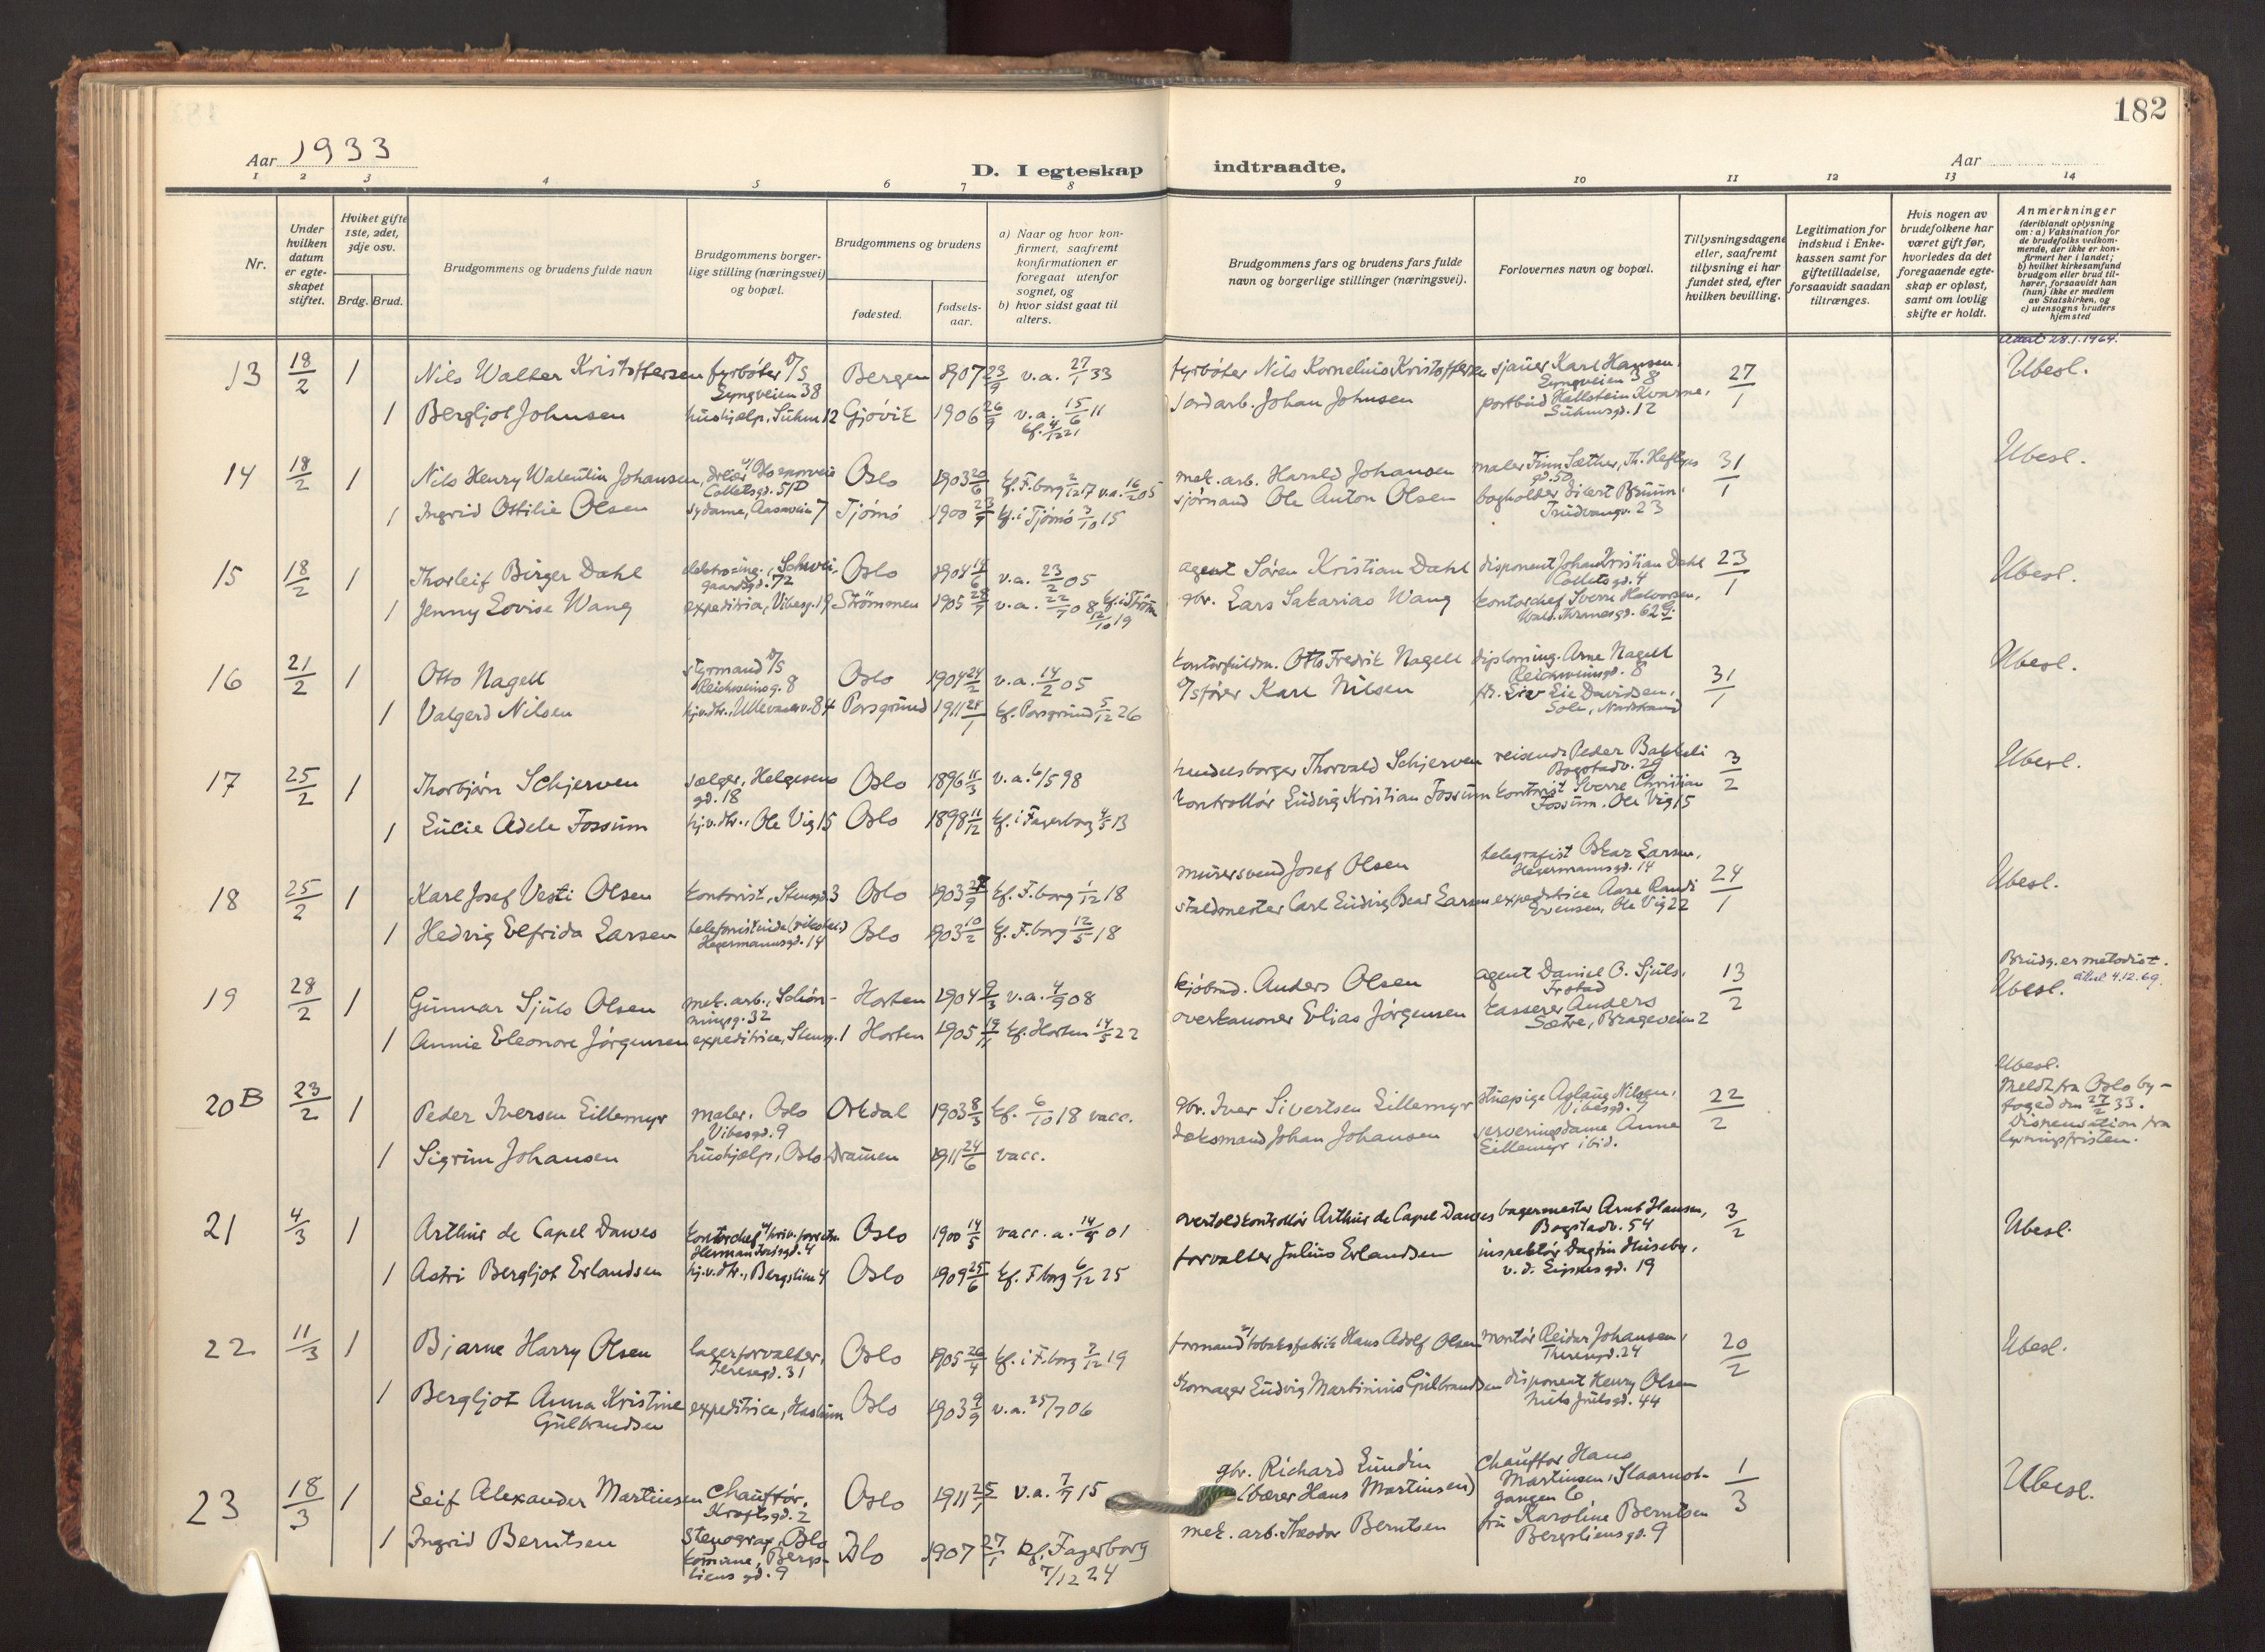 182
Aar 1933
D. I egteskap indtraadte.
Aar
1 2 3 4 5 6 7 8 9 10 11 12 13 14
Nr.
Under hvilken datum er egteskapet stiftet.
Hviket gifte 1ste, 2det, 3dje osv.
Brdg. Brud.
Brudgommens og brudens fulde navn
Brudgommens borgerlige stilling (næringsvei) og bopæl.
Brudgommens og brudens
fødested.
fødselsaar.
a) Naar og hvor konfirmert, saafremt konfirmationen er foregaat utenfor sognet, og
b) hvor sidst gaat til alters.
Brudgommens fars og brudens fars fulde navn og borgerlige stillinger (næringsvei).
Forlovernes navn og bopæl.
Tillysningsdagene eller, saafremt tillysning ei har fundet sted, efter hvilken bevilling.
Legitimation for indskud i Enkekassen samt for giftetilladelse, forsaavidt saadan tiltrænges.
Hvis nogen av brudefolkene har været gift før, hvorledes da det foregaaende egteskap er opløst, samt om lovlig skifte er holdt.
Anmerkninger
(deriblandt oplysning om: a) Vaksination for de brudefolks vedkommende, der ikke er konfirmert her i landet;
b) hvilket kirkesamfund brudgom eller brud tilhører, forsaavidt han (hun) ikke er medlem av Statskirken, og
c) utensogns bruders hjemsted
13 18/2 1 Nils Walter Kristoffersen fyrbøter D/S Bergen 1907 23/9 v.a. 27/1 33 fyrbøter Nils Kornelius Kristoffersen sjauer Karl Hansen, 27/1 Ubesl.
Lyngveien 38
1 Bergljot Johnsen hushjælp, Suhm 12 Gjøvik 1906 26/9 v.a. 15/6 11 Jordarb. Johan Johnsen portbud Hallstein Kvarne, Suhmsgd. 12
kf. 4/12 21
14 18/2 1 Nils Henry Walentin Johansen, Oslo 1903 20/6 kf. F.borg 2/12 17 v.a. 16/2 05 mek. arb. Harald Johansen maler Finn Sæther, Th. Heftyes gd. 50 31/1 Ubesl.
Colletsgd. 51D
1 Ingrid Ottilie Olsen sydame, 7 Tjømø 1900 23/9 kf. i Tjømø 3/10 15 sjømand Ole Anton Olsen bogholder Bruun. Trudvangv. 23
15 18/2 1 Thorleif Birger Dahl elektroing., Schweigaardsgd. 72 Oslo 1904 v.a. 23/2 05 agent Søren Kristian Dahl disponent Johan Kristian Dahl Colletsgd. 4 23/1 Ubesl.
1 Jenny Lovise Wang expeditrice, Vibesg. 19 Strømmen 1905 28/7 v.a. 22/7 08 kf. i Strøm. 12/10 19 gbr. Lars Sakarias Wang kontorchef Sverre Halvorsen, Wald. Thranesgd. 62 G.
16 21/2 1 Otto Nagell styrmand D/S Reichweinsg. 8 Oslo 1904 24/2 v.a. 14/2 05 kontorfuldm. Otto Fredrik Nagell diploming. Arne Nagell Reichweinsgd. 8 31/1 Ubesl.
1 Valgerd Nilsen hj.v.dtr., Ullevaalsv. 84 Porsgrund 1911 28/1 kf. Porsgrund 5/12 26 D/Sfører Karl Nilsen Davidsen, Nordstrand
17 25/2 1 Thorbjørn Schjerven sælger, Helgesens gd. 18 Oslo 1896 11/3 v.a. 6/5 98 handelsborger Thorvald Schjerven reisende Peder Bakkeli Bogstadv. 29 3/2 Ubesl.
1 Lucie Adele Fossum hj.v.dtr., Ole Vig 15 Oslo 1898 11/12 kf. i Fagerborg 4/5 13 kontrollør Ludvig Kristian Fossum kontorist Sverre Christian Fossum. Ole Vig 15
18 25/2 1 Karl Josef Vesti Olsen kontorist, Stensgd. 3 Oslo 1903 kf. F.borg 1/12 18 murersvend Josef Olsen telegrafist Oskar Larsen, Hegermannsgd. 14 24/1 Ubesl.
1 Hedvig Elfrida Larsen telefonistinde Hegermannsgd. 14 Oslo 1903 10/2 kf. F.borg 12/5 18 staldmester Carl Ludvig Larsen expeditrice Aase Randi Evensen, Ole Vig 22
19 28/2 1 Gunnar Sjuls Olsen mek. arb., Schønningsg. 32 Horten 1904 9/3 v.a. 4/9 08 kjøbmd. Anders Olsen agent Daniel O. Sjuls. 13/2 Brudg. er metodist. Ubesl. 4.12.69.
1 Annie Eleonore Jørgensen expeditrice, Stensg. 1 Horten 1905 19/11 kf. Horten 14/5 22 overkanoner Elias Jørgensen kasserer Anders Sætre, Brageveien 2
20B 23/2 1 Peder Iversen Lillemyr maler, Oslo Vibesgd. 9 Orkdal 1903 8/3 kf. 6/10 18 vacc. gbr. Iver Sivertsen Lillemyr stuepige Aslaug Nilsen, Vibesgd. 9 22/2 Ubesl. Meldt fra Oslo byfoged den 27/2 33. Dispensation fra lysningsfristen.
1 Sigrun Johansen hushjælp, Oslo Dramen 1911 24/6 vacc. Johan Johansen serveringsdame Anne Lillemyr ibid.
21 4/3 1 Arthur de Capel Dawes kontorchef Herman Fossgd. 4 Oslo 1900 14/5 vacc. a. 14/9 01 overtoldkontrollør Arthur de Capel Dawes bagermester Arnt Hansen, Bogstadv. 54 3/2 Ubesl.
1 Astri Bergljot Erlandsen hj.v.dtr., Bergslien 4 Oslo 1909 25/6 kf. F.borg 6/12 25 forvalter Julius Erlandsen inspektør Dagfin Huseby, v. d. Lippesgd. 19
22 11/3 1 Bjarne Harry Olsen lagerforvalter, Theresegd. 31 Oslo 1905 26/4 kf. i F.borg 7/12 19 formand v/ tobaksfabrik Hans Adolf Olsen montør Reidar Johansen, Theresgd. 24 20/2 Ubesl.
1 Bergljot Anna Kristine Gulbrandsen expeditrice, Haslum Oslo 1903 9/9 v.a. 25/7 06 Ludvig Martinius Gulbrandsen disponent Henry Olsen Niels Juelsgd. 44
23 18/3 1 Leif Alexander Martinsen Chauffør, Kroftsgd. 2 Oslo 1911 25/7 v.a. 7/9 15 gbr. Richard Lundin (bærer Hans Martinsen) Chauffør Hans Martinsen, gangen 6 1/3 Ubesl.
1 Ingrid Berntsen Stenograf, Oslo komune, Bergsliens gd. 9 Oslo 1907 27/1 kf. Fagerborg 7/12 24 mek. arb. Theodor Berntsen fru Karoline Berntsen Bergsliensgd. 9